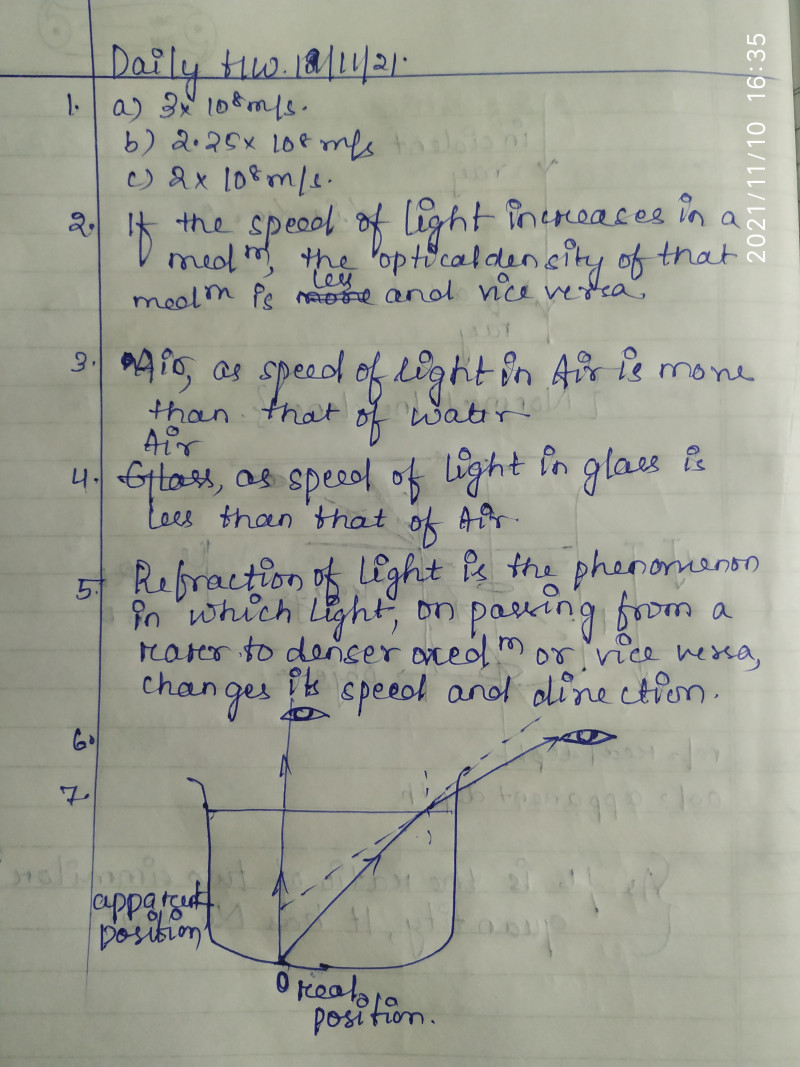 Daily H.W. 10/11/21.
1. a) 3 x 10⁸ m/s.
b) 2.25 x 10⁸ m/s
c) 2 x 10⁸ m/s.
2. If the speed of light increases in a
medᵐ, the optical density of that
less
medᵐ is more and vice versa.
3. Air, as speed of light in Air is more
than that of water
Air
4. Glass, as speed of light in glass is
less than that of Air.
5. Refraction of light is the phenomenon
in which light, on passing from a
rarer to denser medᵐ or vice versa,
changes its speed and direction.
6.
7.
apparent
position
O real
position.
2021/11/10 16:35